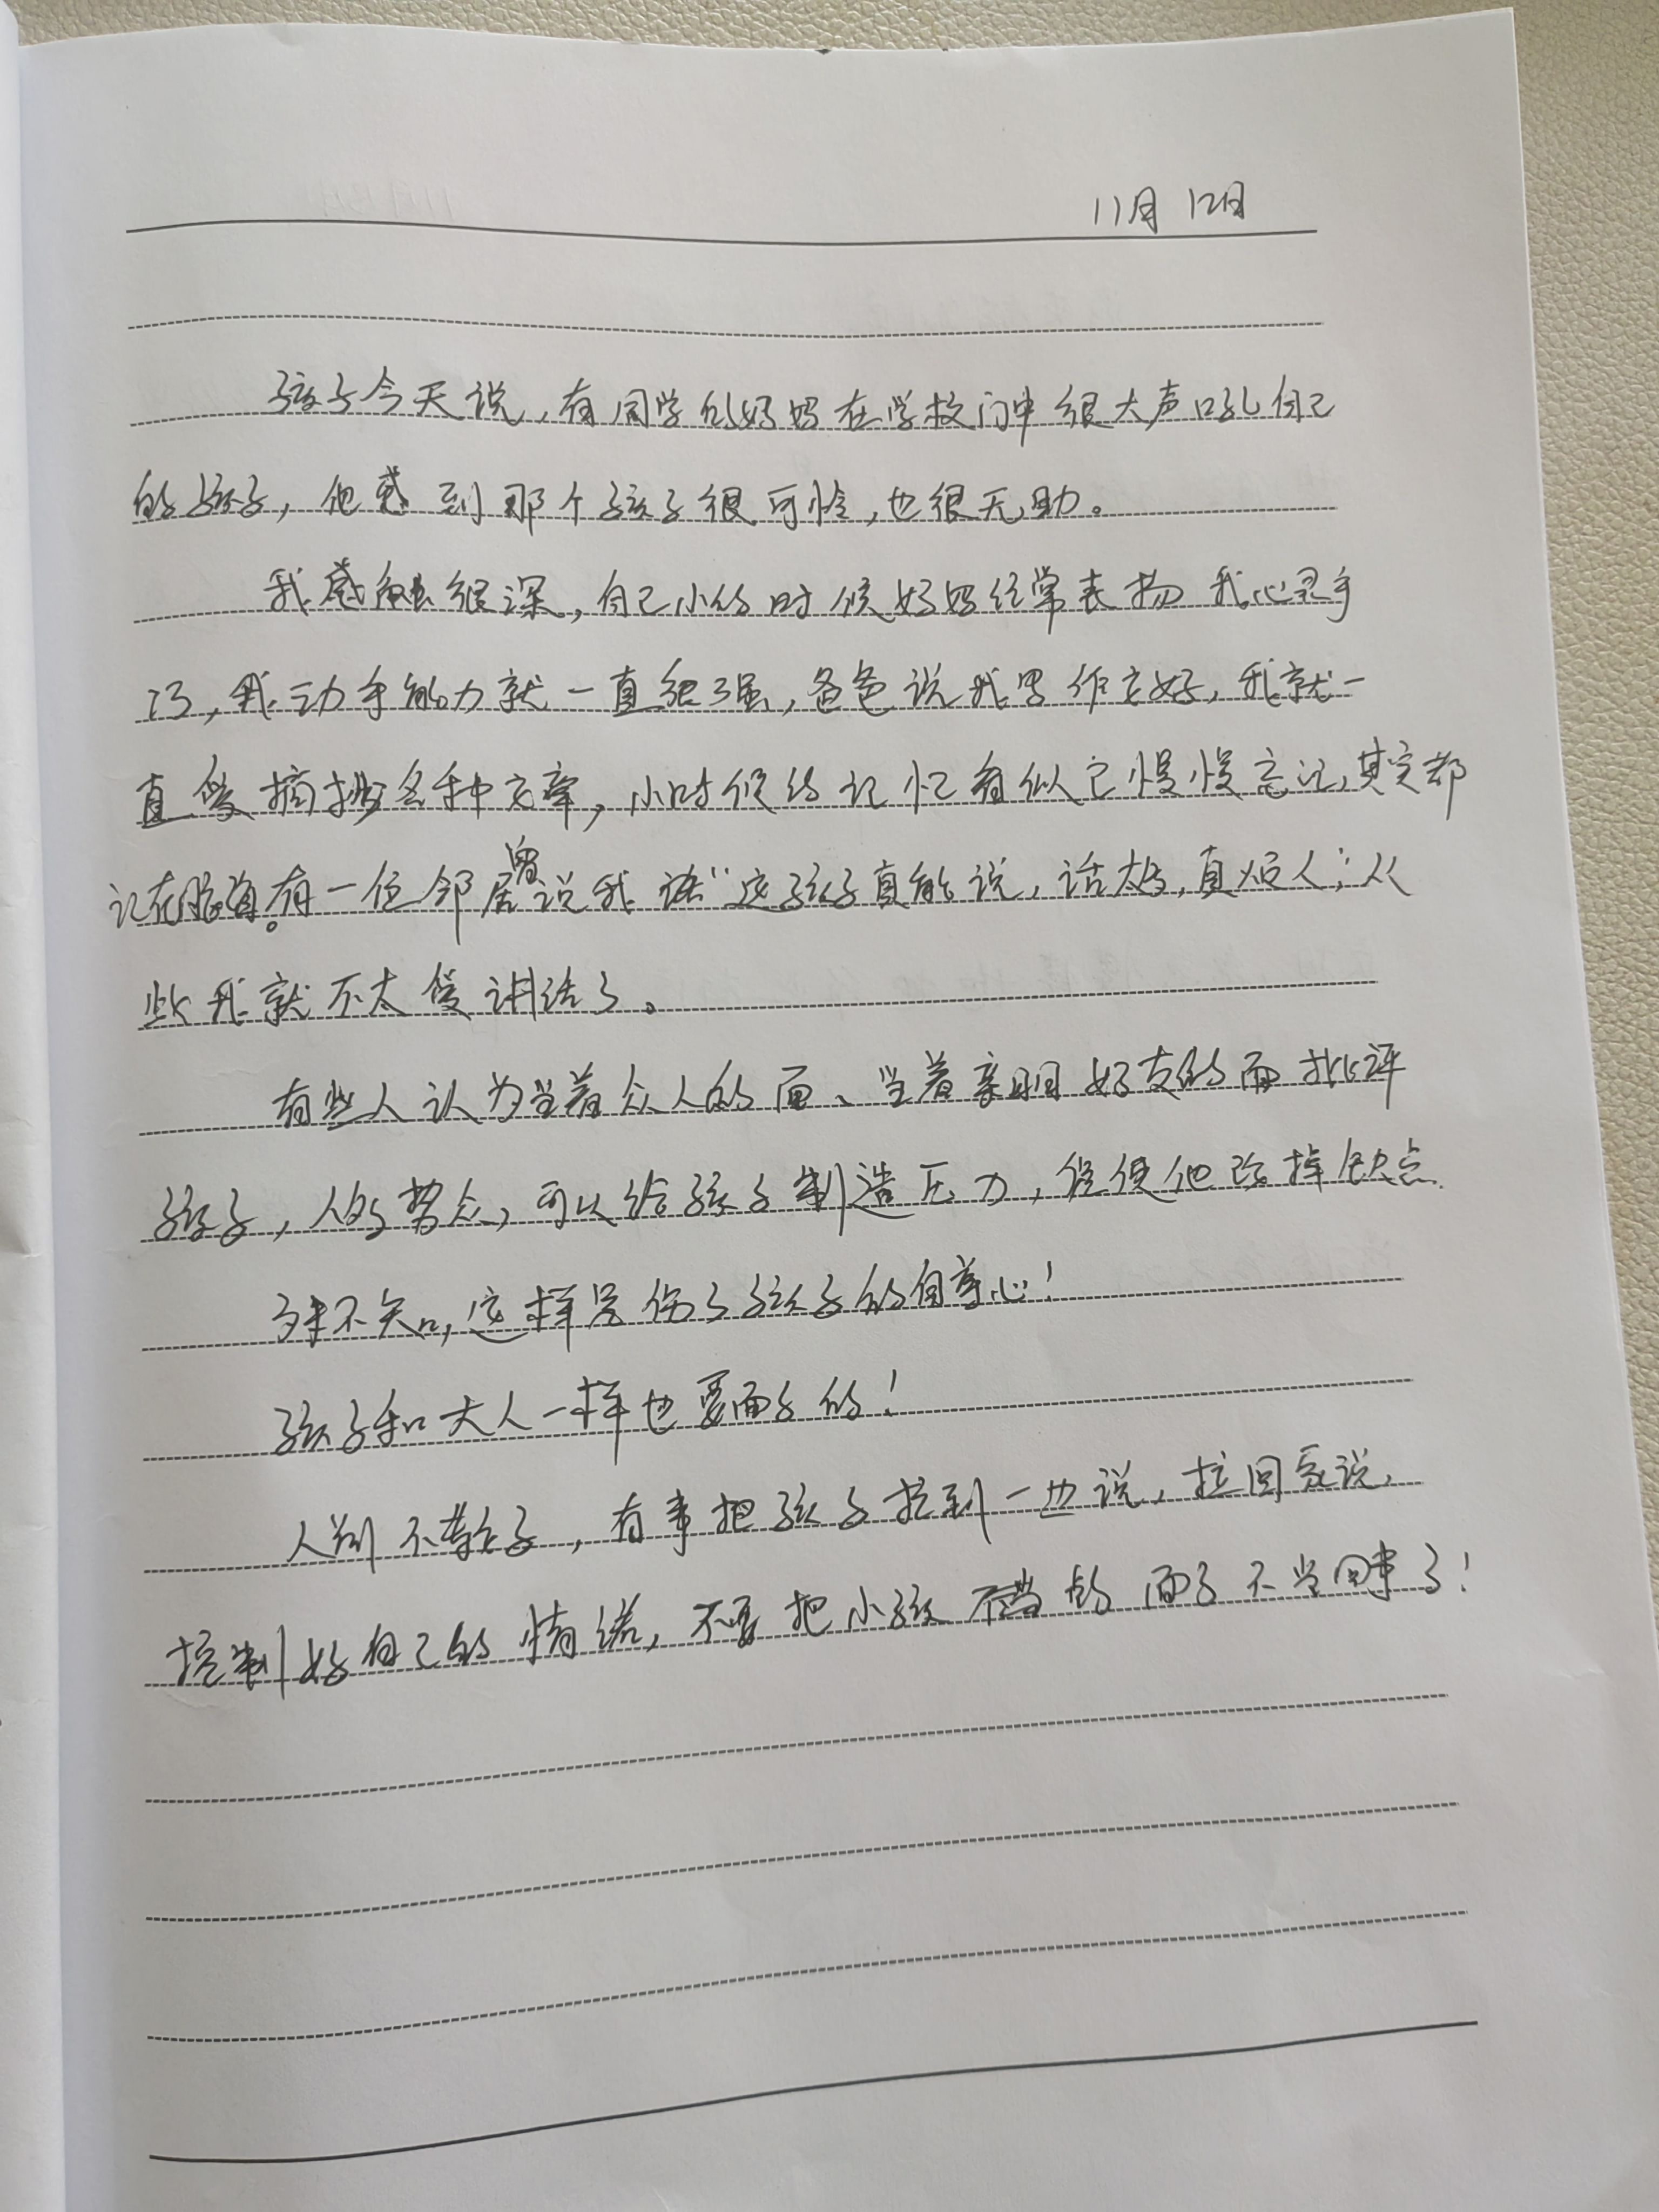 11月12日
孩子今天说,有同学的妈妈在学校门中很大声吼自己
的孩子,他感到那个孩子很可怜,也很无助。
我感触很深,自己小的时候妈妈经常表扬我心灵手
巧,我动手能力就一直很强,爸爸说我写作文好,我就一
直爱摘抄各种文章,小时候的记忆看似已慢慢忘记,其实都
记在脑海。有一位邻居曾说我 "这孩子真能说,话太多,真烦人",从
此我就不太爱讲话了。
有些人认为当着众人的面、当着亲朋好友的面批评
孩子,人多势众,可以给孩子制造压力,促使他改掉缺点.
殊不知,这样是伤了孩子的自尊心!
孩子和大人一样也要面子的!
人前不教子,有事把孩子拉到一边说,拉回家说,
控制好自己的情绪,不要把小孩 的面子不当回事了!